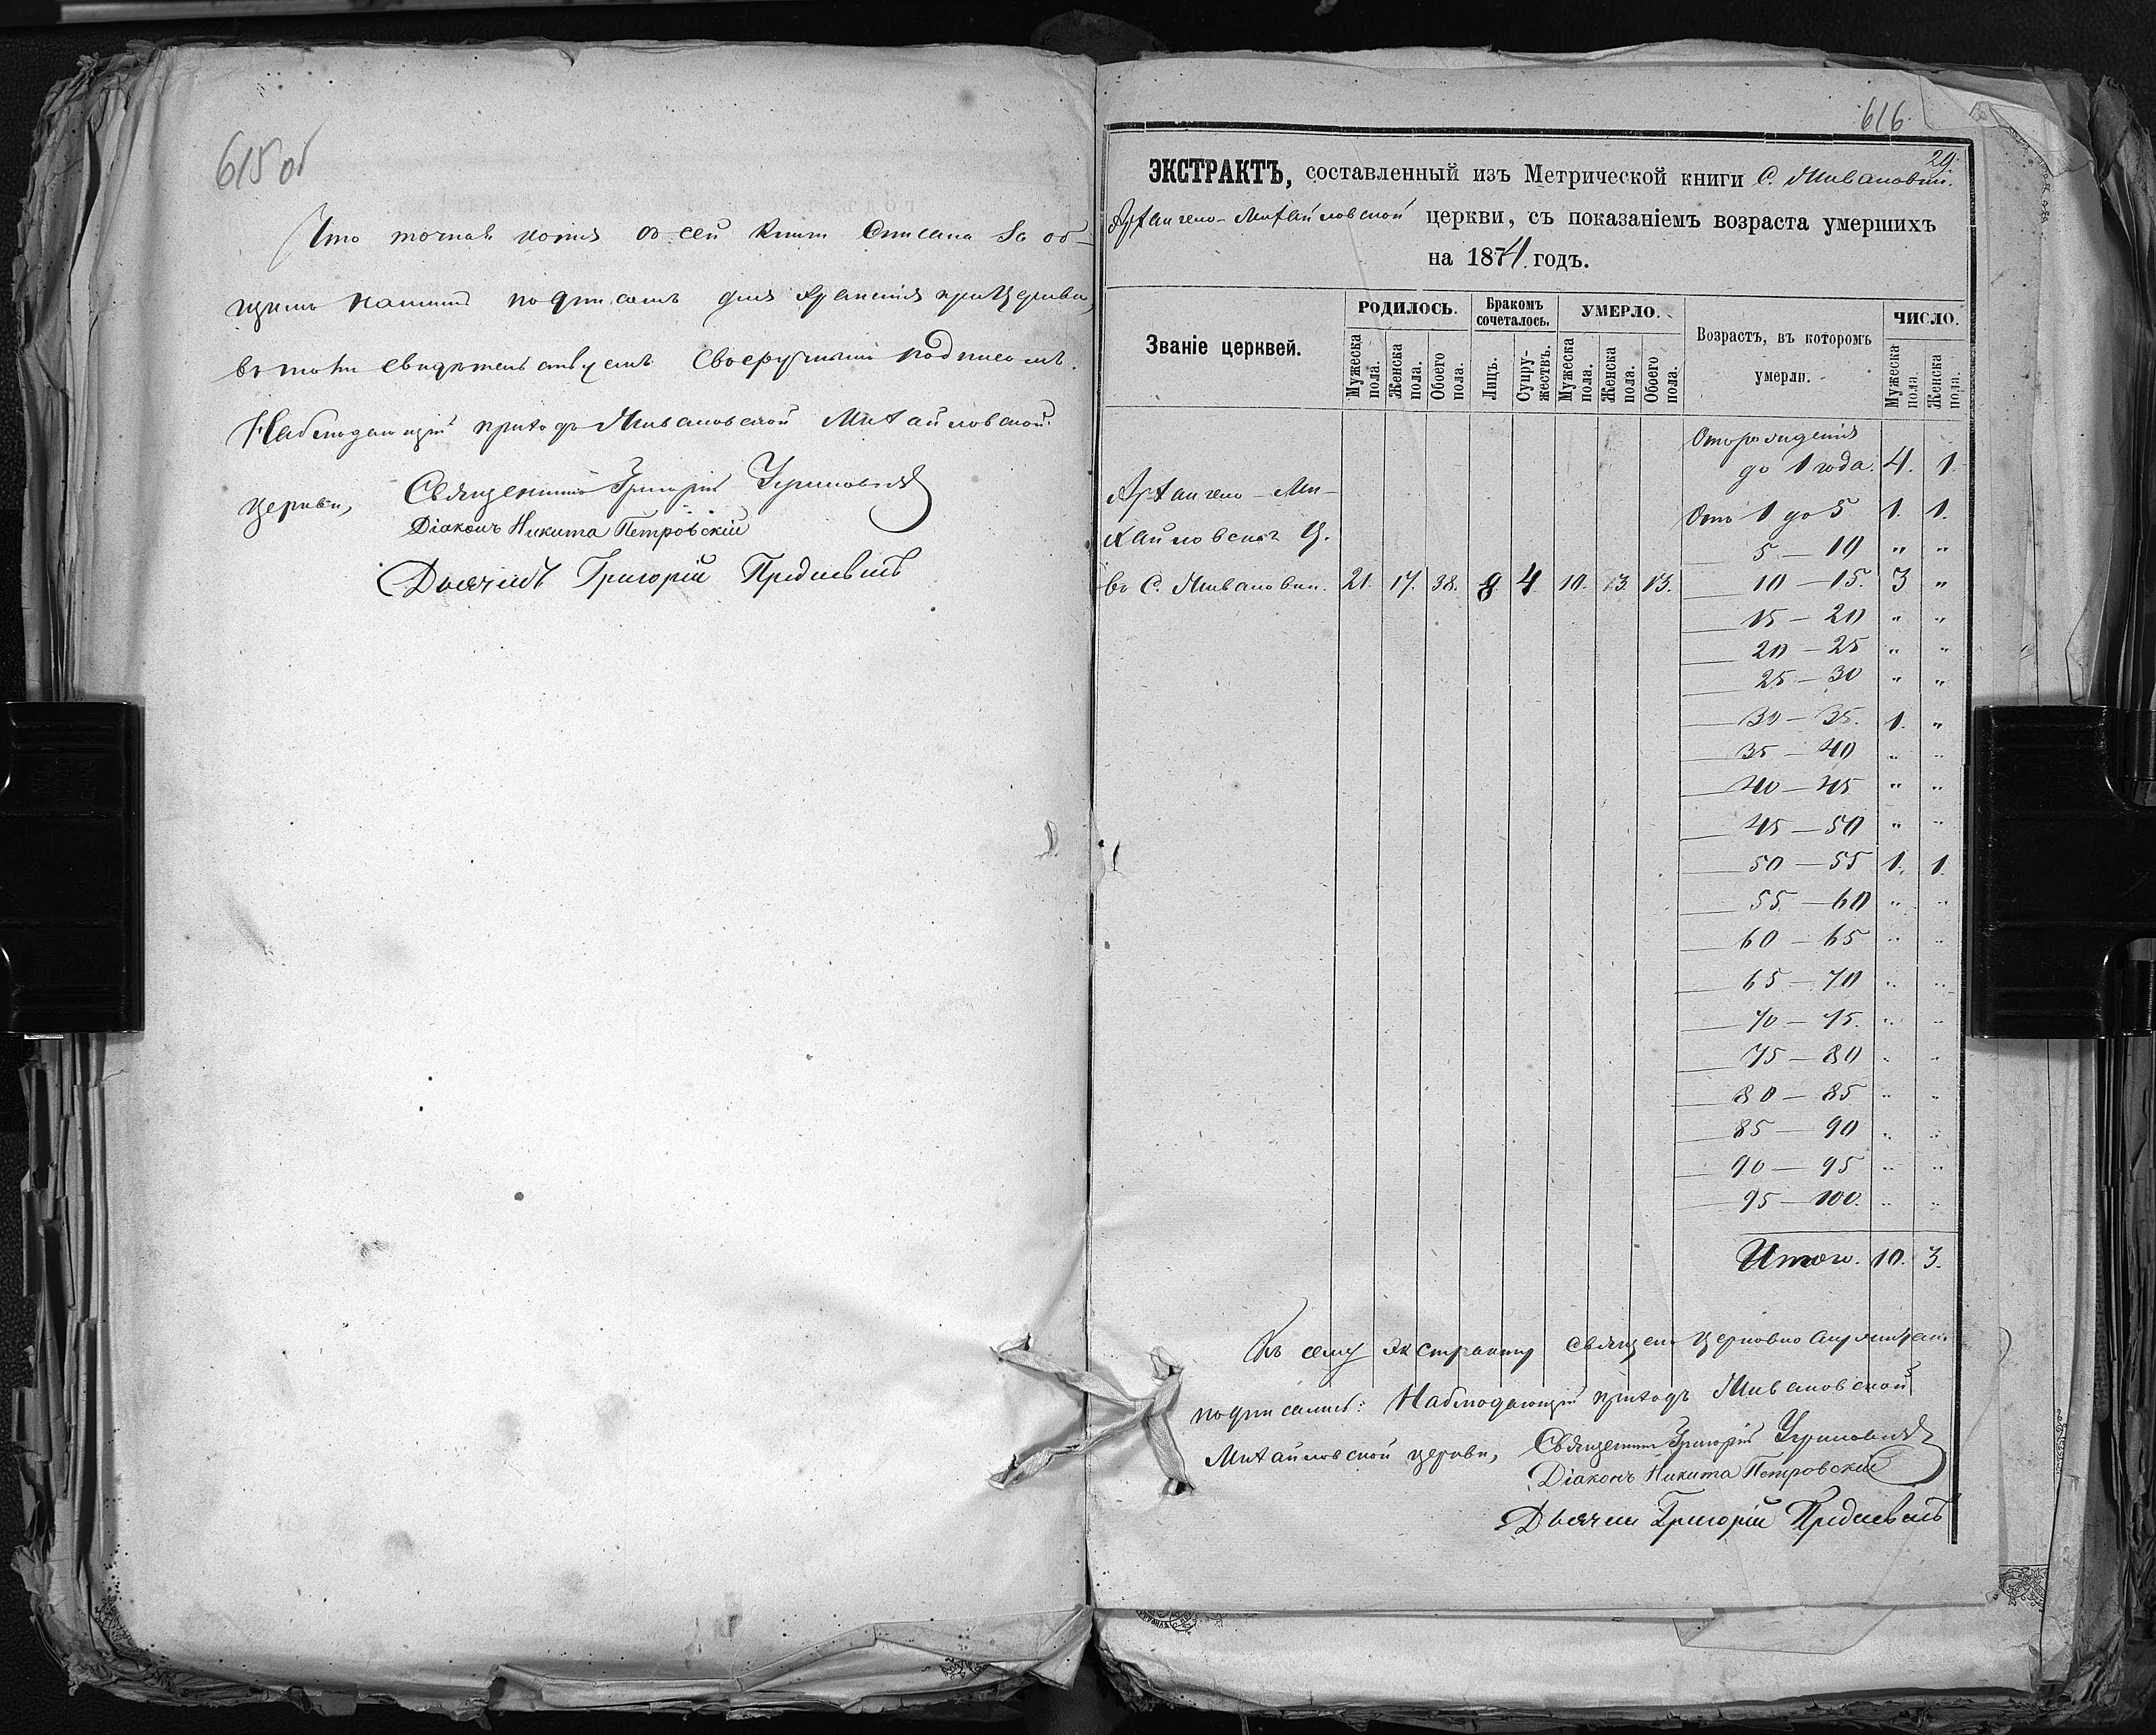 615 об
Что точная копія съ сей книги списана за об-
щимъ нашимъ подписомъ для храненія при Церкви,
въ томъ свидѣтельствуемъ своеручнымъ подписомъ.
Наблюдающій приходъ Михайловской
церкви, Священникъ Григорій
Діаконъ Никита Петровскій
Дьячекъ Григорій
616
29
ЭКСТРАКТЪ, составленный изъ Метрической книги С.
Архангело-Михайловской церкви, съ показаніемъ возраста умершихъ
на 1874. годъ.
Званіе церквей. РОДИЛОСЬ. Бракомъ сочеталось. УМЕРЛО. Возрастъ, въ которомъ умерли. ЧИСЛО.
Мужеска пола. Женска пола. Обоего пола. Лицъ. Супружествъ. Мужеска пола. Женска пола. Обоего пола. Мужеска пола. Женска пола.
Отъ рожденія
до 1 года. 4. 1.
Архангело-Ми-
Отъ 1 до 5 1. 1.
хайловская Ц.
5 — 10 „ „
въ С. 21. 17. 38. 8. 4. 10. 13. 13. 10 — 15. 3 „
15 — 20 „ „
20 — 25 „ „
25 — 30 „ „
30 — 35. 1. „
35 — 40 „ „
40 — 45 „ „
45 — 50 „ „
50 — 55 1. 1.
55 — 60 „ „
60 — 65 „ „
65 — 70 „ „
70 — 75. „ „
75 — 80 „ „
80 — 85 „ „
85 — 90 „ „
90 — 95 „ „
95 — 100. „ „
Итого. 10. 3.
Къ сему экстракту священно церковно служители
подписались: Наблюдающій приходъ
Михайловской церкви, Священникъ Григорій
Діаконъ Никита Петровскій
Дьячекъ Григорій